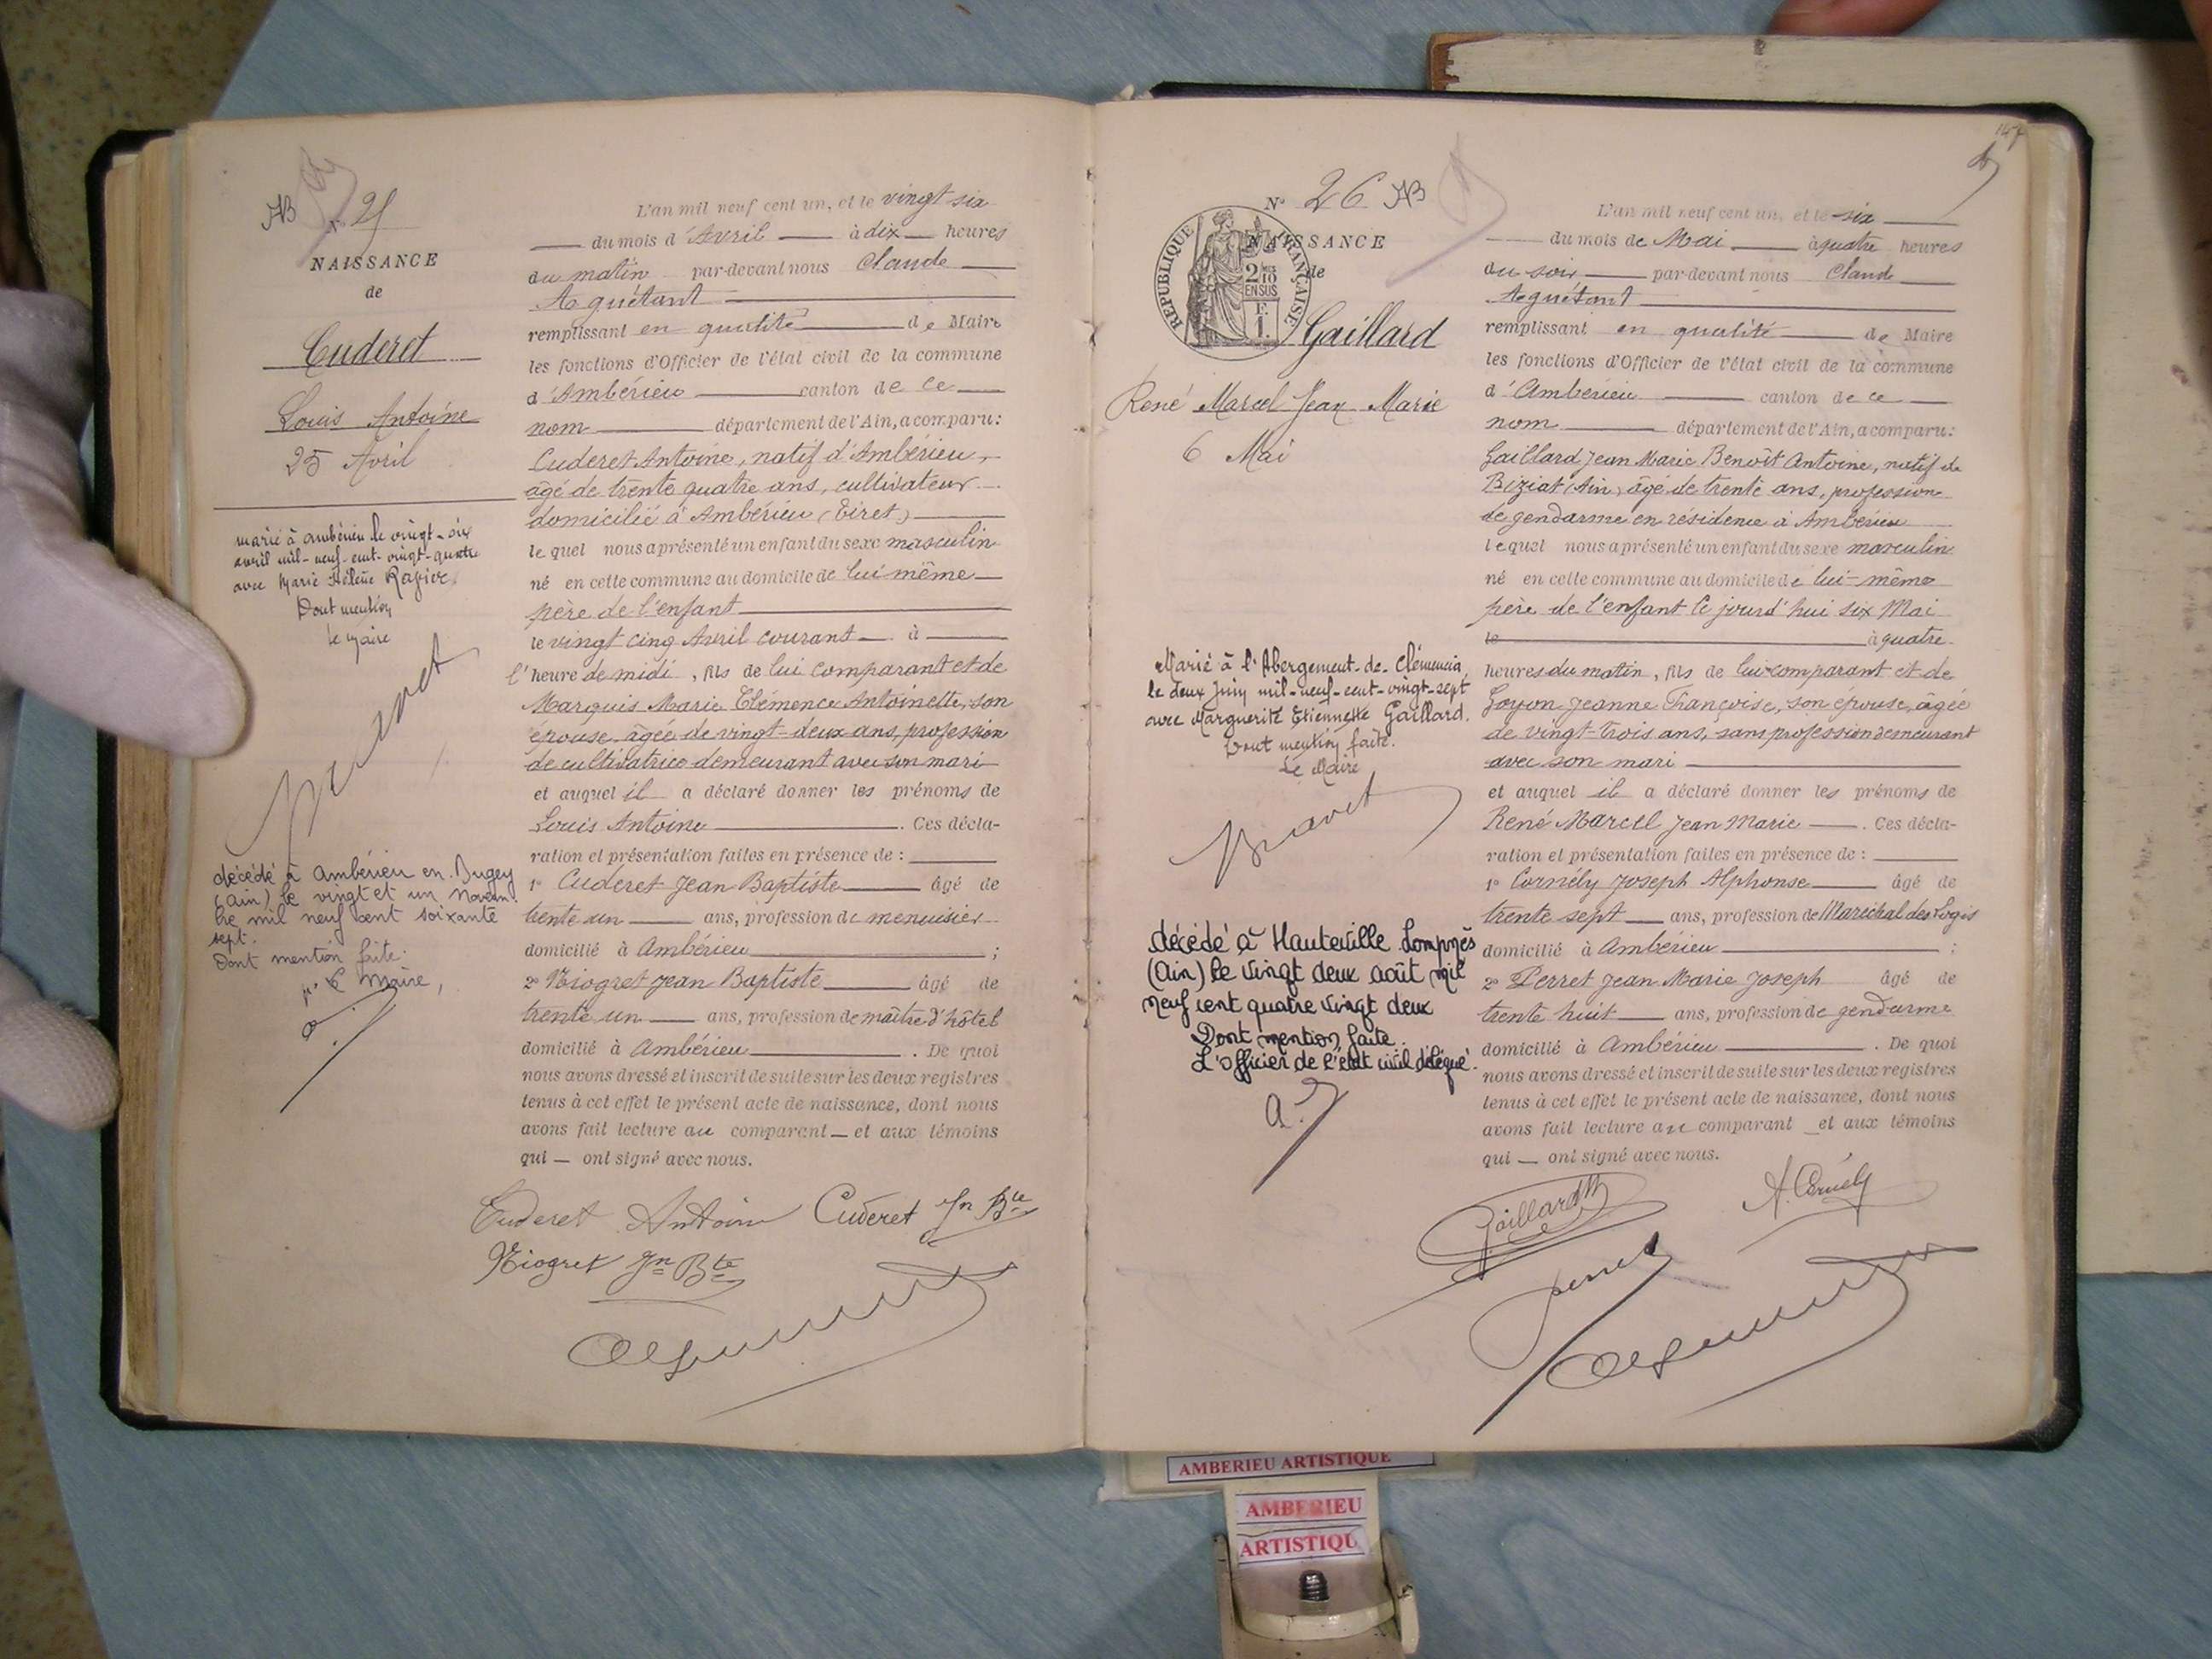 AB
N° 25
NAISSANCE
de
Cuderet
Louis Antoine
25 Avril
marié à ambérieu le vingt-six
avril mil-neuf-cent-vingt-quatre
avec Marie Hélène
Dont mention
le maire
décédé à Ambérieu en Bugey
(Ain) le vingt et un Novem-
bre mil neuf cent soixante
sept.
Dont mention faite:
pr le Maire,
L'an mil neuf cent un, et le vingt six
du mois d'Avril à dix heures
du matin par-devant nous Claude
Aguétant
remplissant en qualité de Maire
les fonctions d'Officier de l'état civil de la commune
d'Ambérieu canton de ce
nom département de l'Ain, a comparu:
Cuderet Antoine, natif d'Ambérieu,
âgé de trente quatre ans, cultivateur
domicilié à Ambérieu (Tiret)
lequel nous a présenté un enfant du sexe masculin
né en cette commune au domicile de lui même
père de l'enfant
le vingt cinq Avril courant à
l'heure de midi, fils de lui comparant et de
Marquis Marie Clémence Antoinette, son
épouse âgée de vingt-deux ans, profession
de cultivatrice demeurant avec son mari
et auquel il a déclaré donner les prénoms de
Louis Antoine. Ces décla-
ration et présentation faites en présence de :
1° Cuderet Jean Baptiste âgé de
trente un ans, profession de menuisier
domicilié à Ambérieu ;
2° Niogret Jean Baptiste âgé de
trente un ans, profession de maître d'hôtel
domicilié à Ambérieu. De quoi
nous avons dressé et inscrit de suite sur les deux registres
tenus à cet effet le présent acte de naissance, dont nous
avons fait lecture au comparant et aux témoins
qui ont signé avec nous.
Cuderet Antoine Cuderet Jn Bte
Niogret Jn Bte
147
N° 26 AB
NAISSANCE
de
RÉPUBLIQUE FRANÇAISE
2/10 EN SUS
F.
1.
Gaillard
René Marcel Jean Marie
6 Mai
Marié à l'Abergement-de-Clémencia
le deux Juin mil-neuf-cent-vingt-sept
avec Marguerite Etiennette Gaillard.
Dont mention faite.
Le Maire
décédé à Hauteville Lompnès
(Ain) le vingt deux août mil
neuf cent quatre vingt deux
Dont mention faite.
L'officier de l'état civil délégué.
L'an mil neuf cent un, et le six
du mois de Mai à quatre heures
du soir par-devant nous Claude
Aguétant
remplissant en qualité de Maire
les fonctions d'Officier de l'état civil de la commune
d'Ambérieu canton de ce
nom département de l'Ain, a comparu:
Gaillard Jean Marie Benoît Antoine, natif de
Biziat (Ain) âgé de trente ans, profession
de gendarme en résidence à Ambérieu
lequel nous a présenté un enfant du sexe masculin
né en cette commune au domicile de lui-même
père de l'enfant le jourd'hui six Mai
le à quatre
heures du matin, fils de lui comparant et de
Goyon Jeanne Françoise, son épouse, âgée
de vingt-trois ans, sans profession demeurant
avec son mari
et auquel il a déclaré donner les prénoms de
René Marcel Jean Marie. Ces décla-
ration et présentation faites en présence de :
1° Cornély Joseph Alphonse âgé de
trente sept ans, profession de Maréchal des Logis
domicilié à Ambérieu ;
2° Perret Jean Marie Joseph âgé de
trente huit ans, profession de gendarme
domicilié à Ambérieu. De quoi
nous avons dressé et inscrit de suite sur les deux registres
tenus à cet effet le présent acte de naissance, dont nous
avons fait lecture au comparant et aux témoins
qui ont signé avec nous.
Gaillard
A. Cornély
Perret
AMBERIEU ARTISTIQUE
AMBERIEU
ARTISTIQU